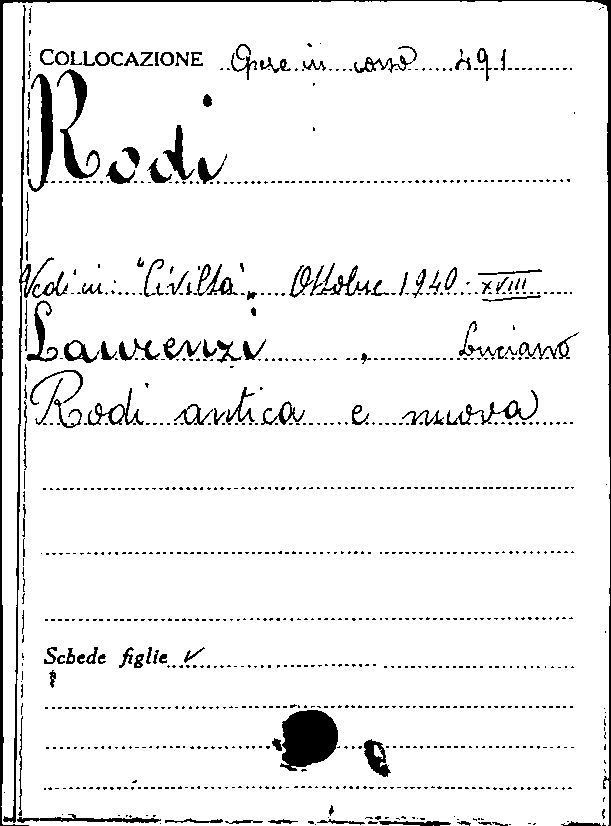 COLLOCAZIONE Opere in corso 491
Rodi
Vedi in: "Civiltà„ Ottobre 1940 - XVIII
Laurenzi, Luciano
Rodi antica e nuova
Schede figlie ✓